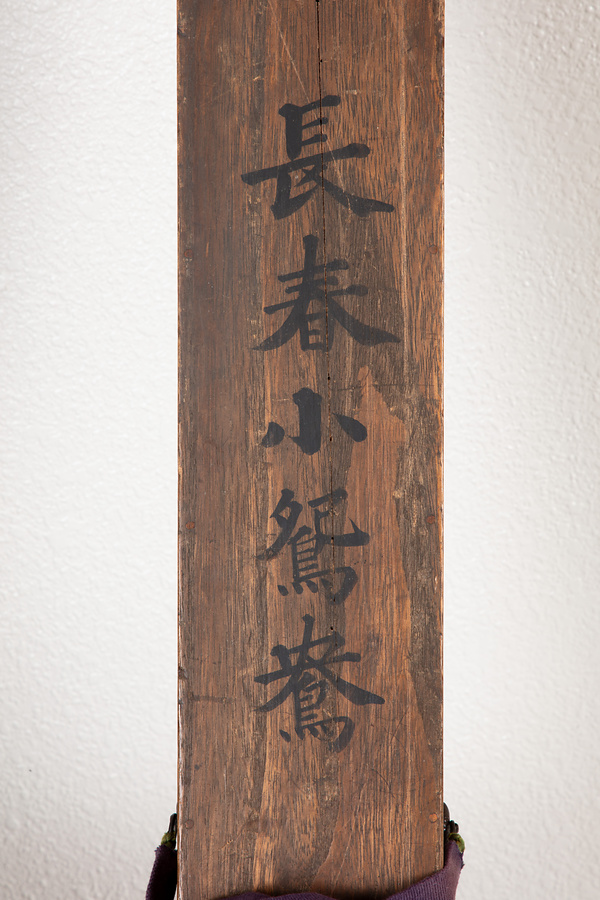 長春小鴛鴦